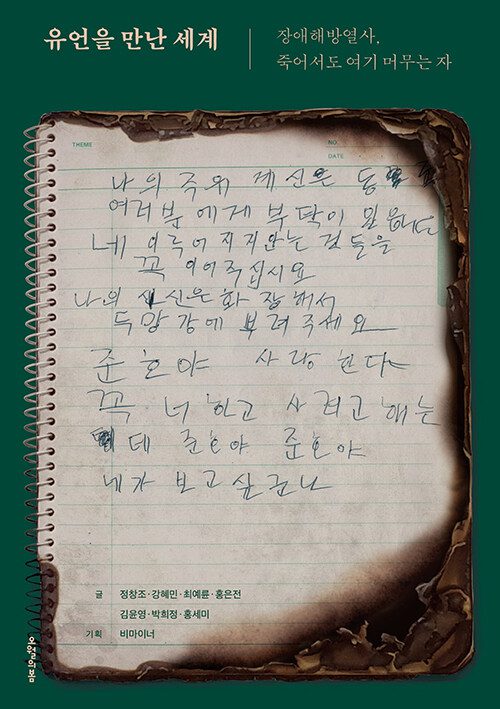 유언을 만난 세계
장애해방열사,
죽어서도 여기 머무는 자
THEME
NO.
DATE
나의 주위 계신은
여러분에게 부탁이 있음니다
네 이루어지지안는 것들을
꼭 이어주십시요
나의 시신은 화장해서
두망강에 보려주세요
준호야 사랑한다
꼭 너하고 사려고 해는
데 준호야 준호야
네가 보고 싶군나
글 정창조·강혜민·최예륜·홍은전
김윤영·박희정·홍세미
기획 비마이너
오월의봄